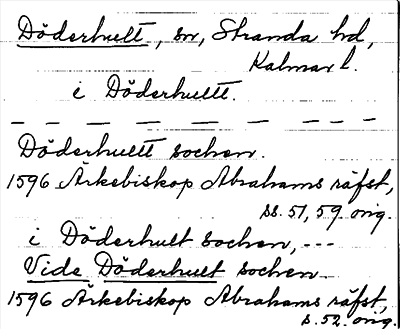 Döderhult, sn, Stranda hd,
Kalmar l.
i Döderhultt.
— — — — — — - - -
Döderhultt sochen.
1596 Ärkebiskop Abrahams räfst,
ss. 51, 59 orig.
i Döderhult sochen, ---
Vide Döderhult sochen
1596 Ärkebiskop Abrahams räfst,
s. 52. orig.